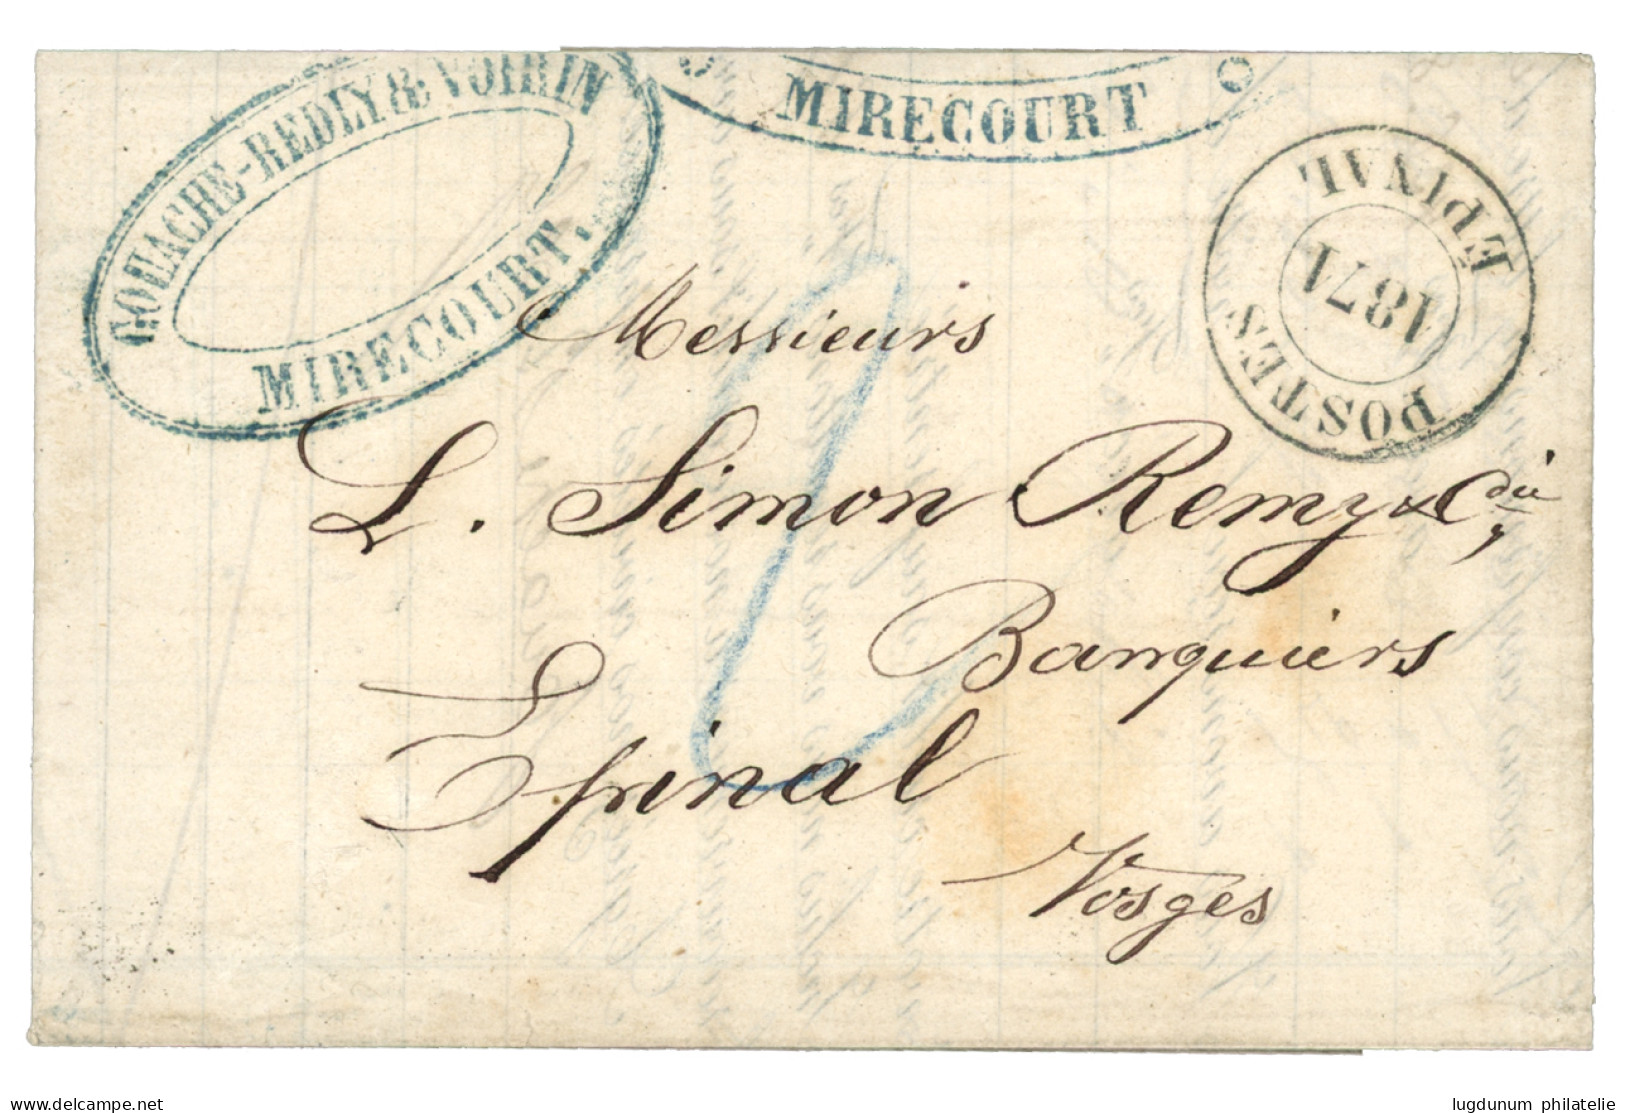 GOUACHE-REDLY & VOIRIN
MIRECOURT.
MIRECOURT
EPIVAL
1871
POSTES
Messieurs
L. Simon Remy & Cie,
Banquiers
Epinal
Vosges
www.delcampe.net
lugdunum philatelie